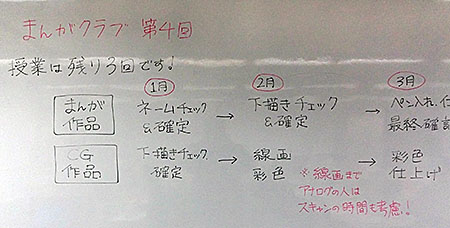 まんがクラブ 第4回
授業は残り3回です!
1月 2月 3月
まんが作品
ネームチェック&確定 → 下描きチェック&確定 → ペン入れ、仕
最終確認
CG作品
下描きチェック確定 → 線画彩色 → 彩色仕上げ
※線画まで
アナログの人は
スキャンの時間も考慮!